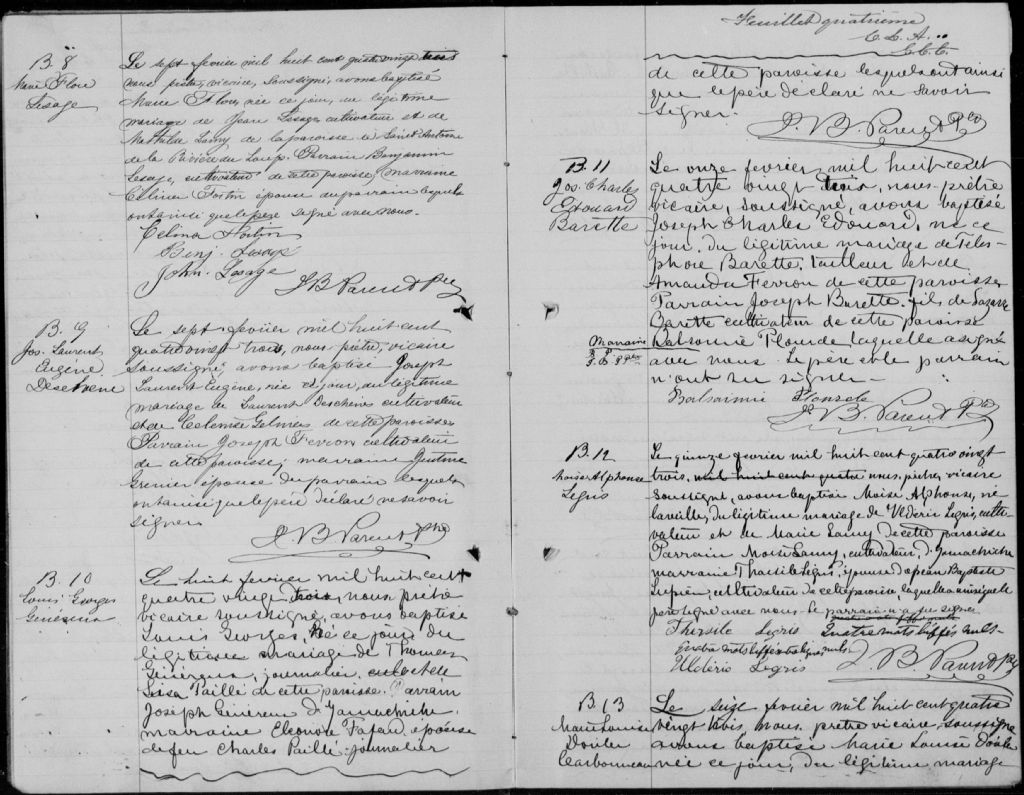 B. 8
Marie Flore
Lesage
Le sept fevrier mil huit cent quatre vingt trois
nous prêtre, vicaire, soussigné, avons baptisé
Marie Flore, née ce jour, du légitime
mariage de Jean Lesage cultivateur et de
Mathilde Lamy de la paroisse de Saint Antoine
de la Rivière du Loup. Parrain Benjamin
Lesage, cultivateur de cette paroisse, marraine
Célina Fortin épouse du parrain lesquels
ont ainsi que le père signé avec nous.
Celina Fortin
Benj. Lesage
John. Lesage
J B Parent Ptre
B. 9
Jos. Laurent
Eugène
Deschene
Le sept fevrier mil huit cent
quatre vingt trois, nous, prêtre, vicaire
soussigné, avons baptisé Joseph
Laurent Eugène, née ce jour, du légitime
mariage de Laurent Deschènes cultivateur
et de de cette paroisse
Parrain Joseph Ferron cultivateur
de cette paroisse; marraine
Grenier épouse du parrain lesquels
ont ainsi que le père déclaré ne savoir
signer.
J B Parent Ptre
B. 10
Louis Georges
Généreux
Le huit fevrier mil huit cent
quatre vingt trois, nous prêtre
vicaire soussigné, avons baptisé
Louis Georges, né ce jour, du
légitime mariage de Thomas
Généreux, journalier, et de
Lisa Paillé de cette paroisse. Parrain
Joseph Généreux d'Yamachiche
marraine Eleonore Fafard épouse
de feu Charles Paillé journalier
Feuillet quatrième
C. L. A..
G.C.C.
de cette paroisse lesquels ont ainsi
que le père déclaré ne savoir
signer.
J. B. Parent Ptre
B. 11
Jos. Charles
Edouard
Barette
Le onze fevrier, mil huit cent
quatre vingt trois, nous, prêtre
vicaire, soussigné, avons baptisé
Joseph Charles Edouard, né ce
jour, du légitime mariage de Téles-
phore Barette, tailleur et de
Amanda Ferron de cette paroisse
Parrain Joseph Barette, fils de Lazare
Barette cultivateur de cette paroisse
Marraine
J. B. P. ptre
Plourde laquelle a signé
avec nous. Le père et le parrain
n'ont su signer -
J. B. Parent Ptre
B. 12
Moïse Alphonse
Legris
Le quinze fevrier mil huit cent quatre vingt
trois, mil huit cent quatre nous, prêtre, vicaire
soussigné, avons baptisé Moïse Alphonse, né
la veille, du légitime mariage de Uldéric Legris, culti-
vateur et de Marie Lamy de cette paroisse
Parrain Moïse Lamy, cultivateur, d'Yamachiche
marraine Tharsile Legris, épouse de Jean Baptiste
cultivateur de cette paroisse, laquelle a ainsi que le
père signé avec nous - Le parrain n'a su signer
Thersile Legris Quatre mots biffés nuls -
Uldéric Legris
J. B. Parent Ptre
B. 13
Marie Louise
Charbonneau
Le seize fevrier mil huit cent quatre
vingt trois, nous, prêtre vicaire, soussigné
avons baptisé Marie Louise
née ce jour, du légitime mariage